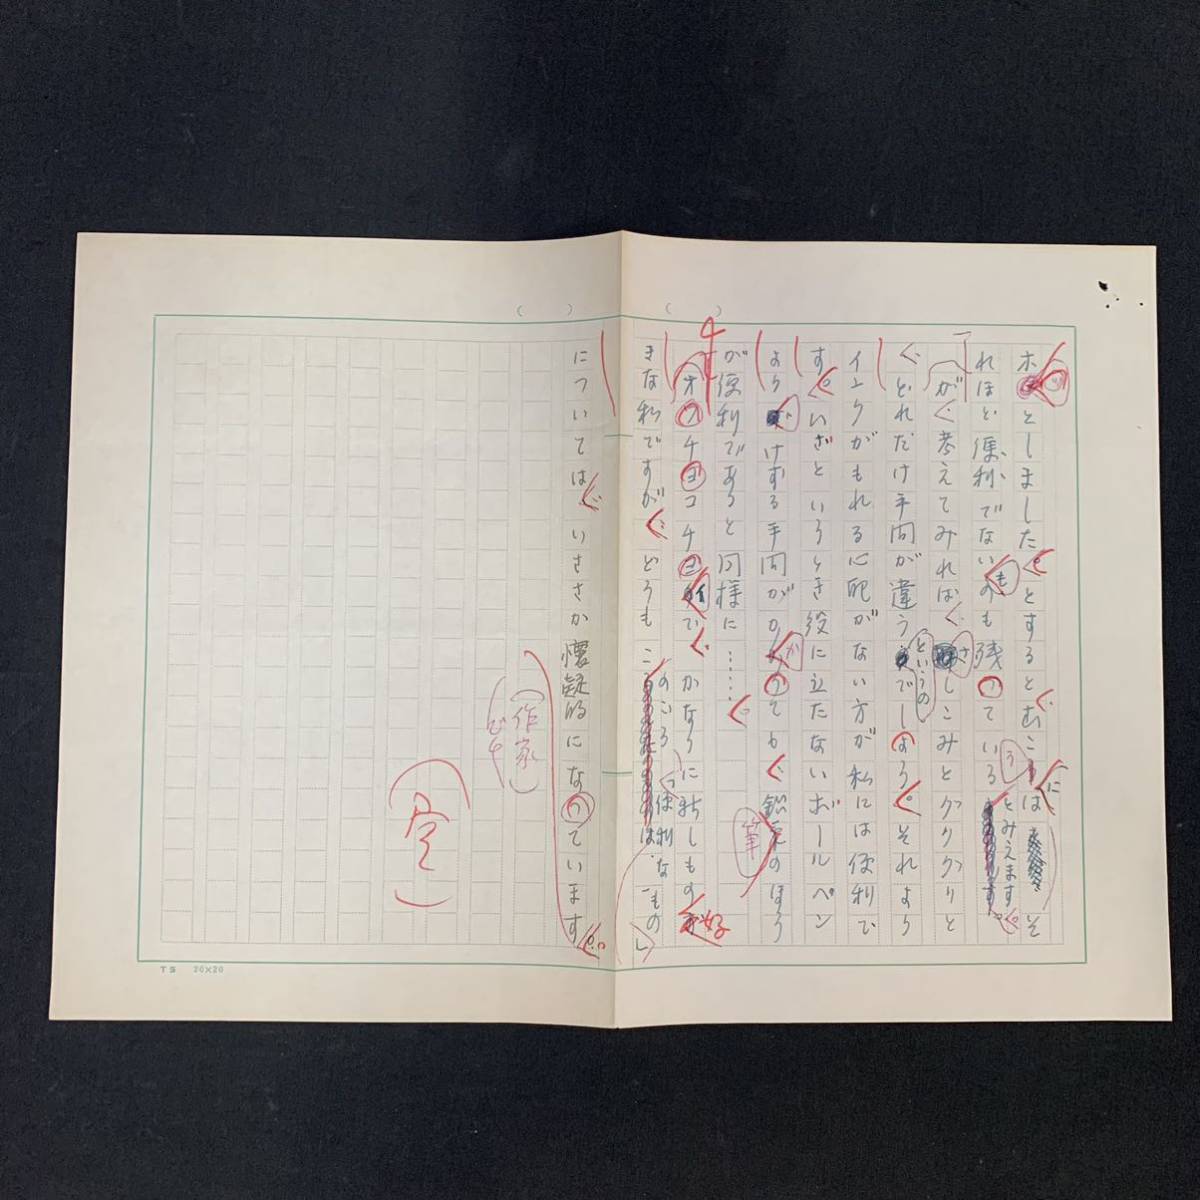 ホッとしました。とするとむこうには そ
れほど便利でないのも残っている とみえます。
が、考えてみれば、さしこみとクククリと
、どれだけ手間が違うというのでしょう。それより
インクがもれる心配がない方が私には便利で
す。いざというとき役に立たないボールペン
より けずる手間がかかっても、鉛筆のほう
が便利であると同様に……、
オッチョコチョイで、かなりに新しもの好
きな私ですが、どうも このごろ 便利な"もの"
については、いささか懐疑的になっています。
(作家)
(完)
4
TS 20×20